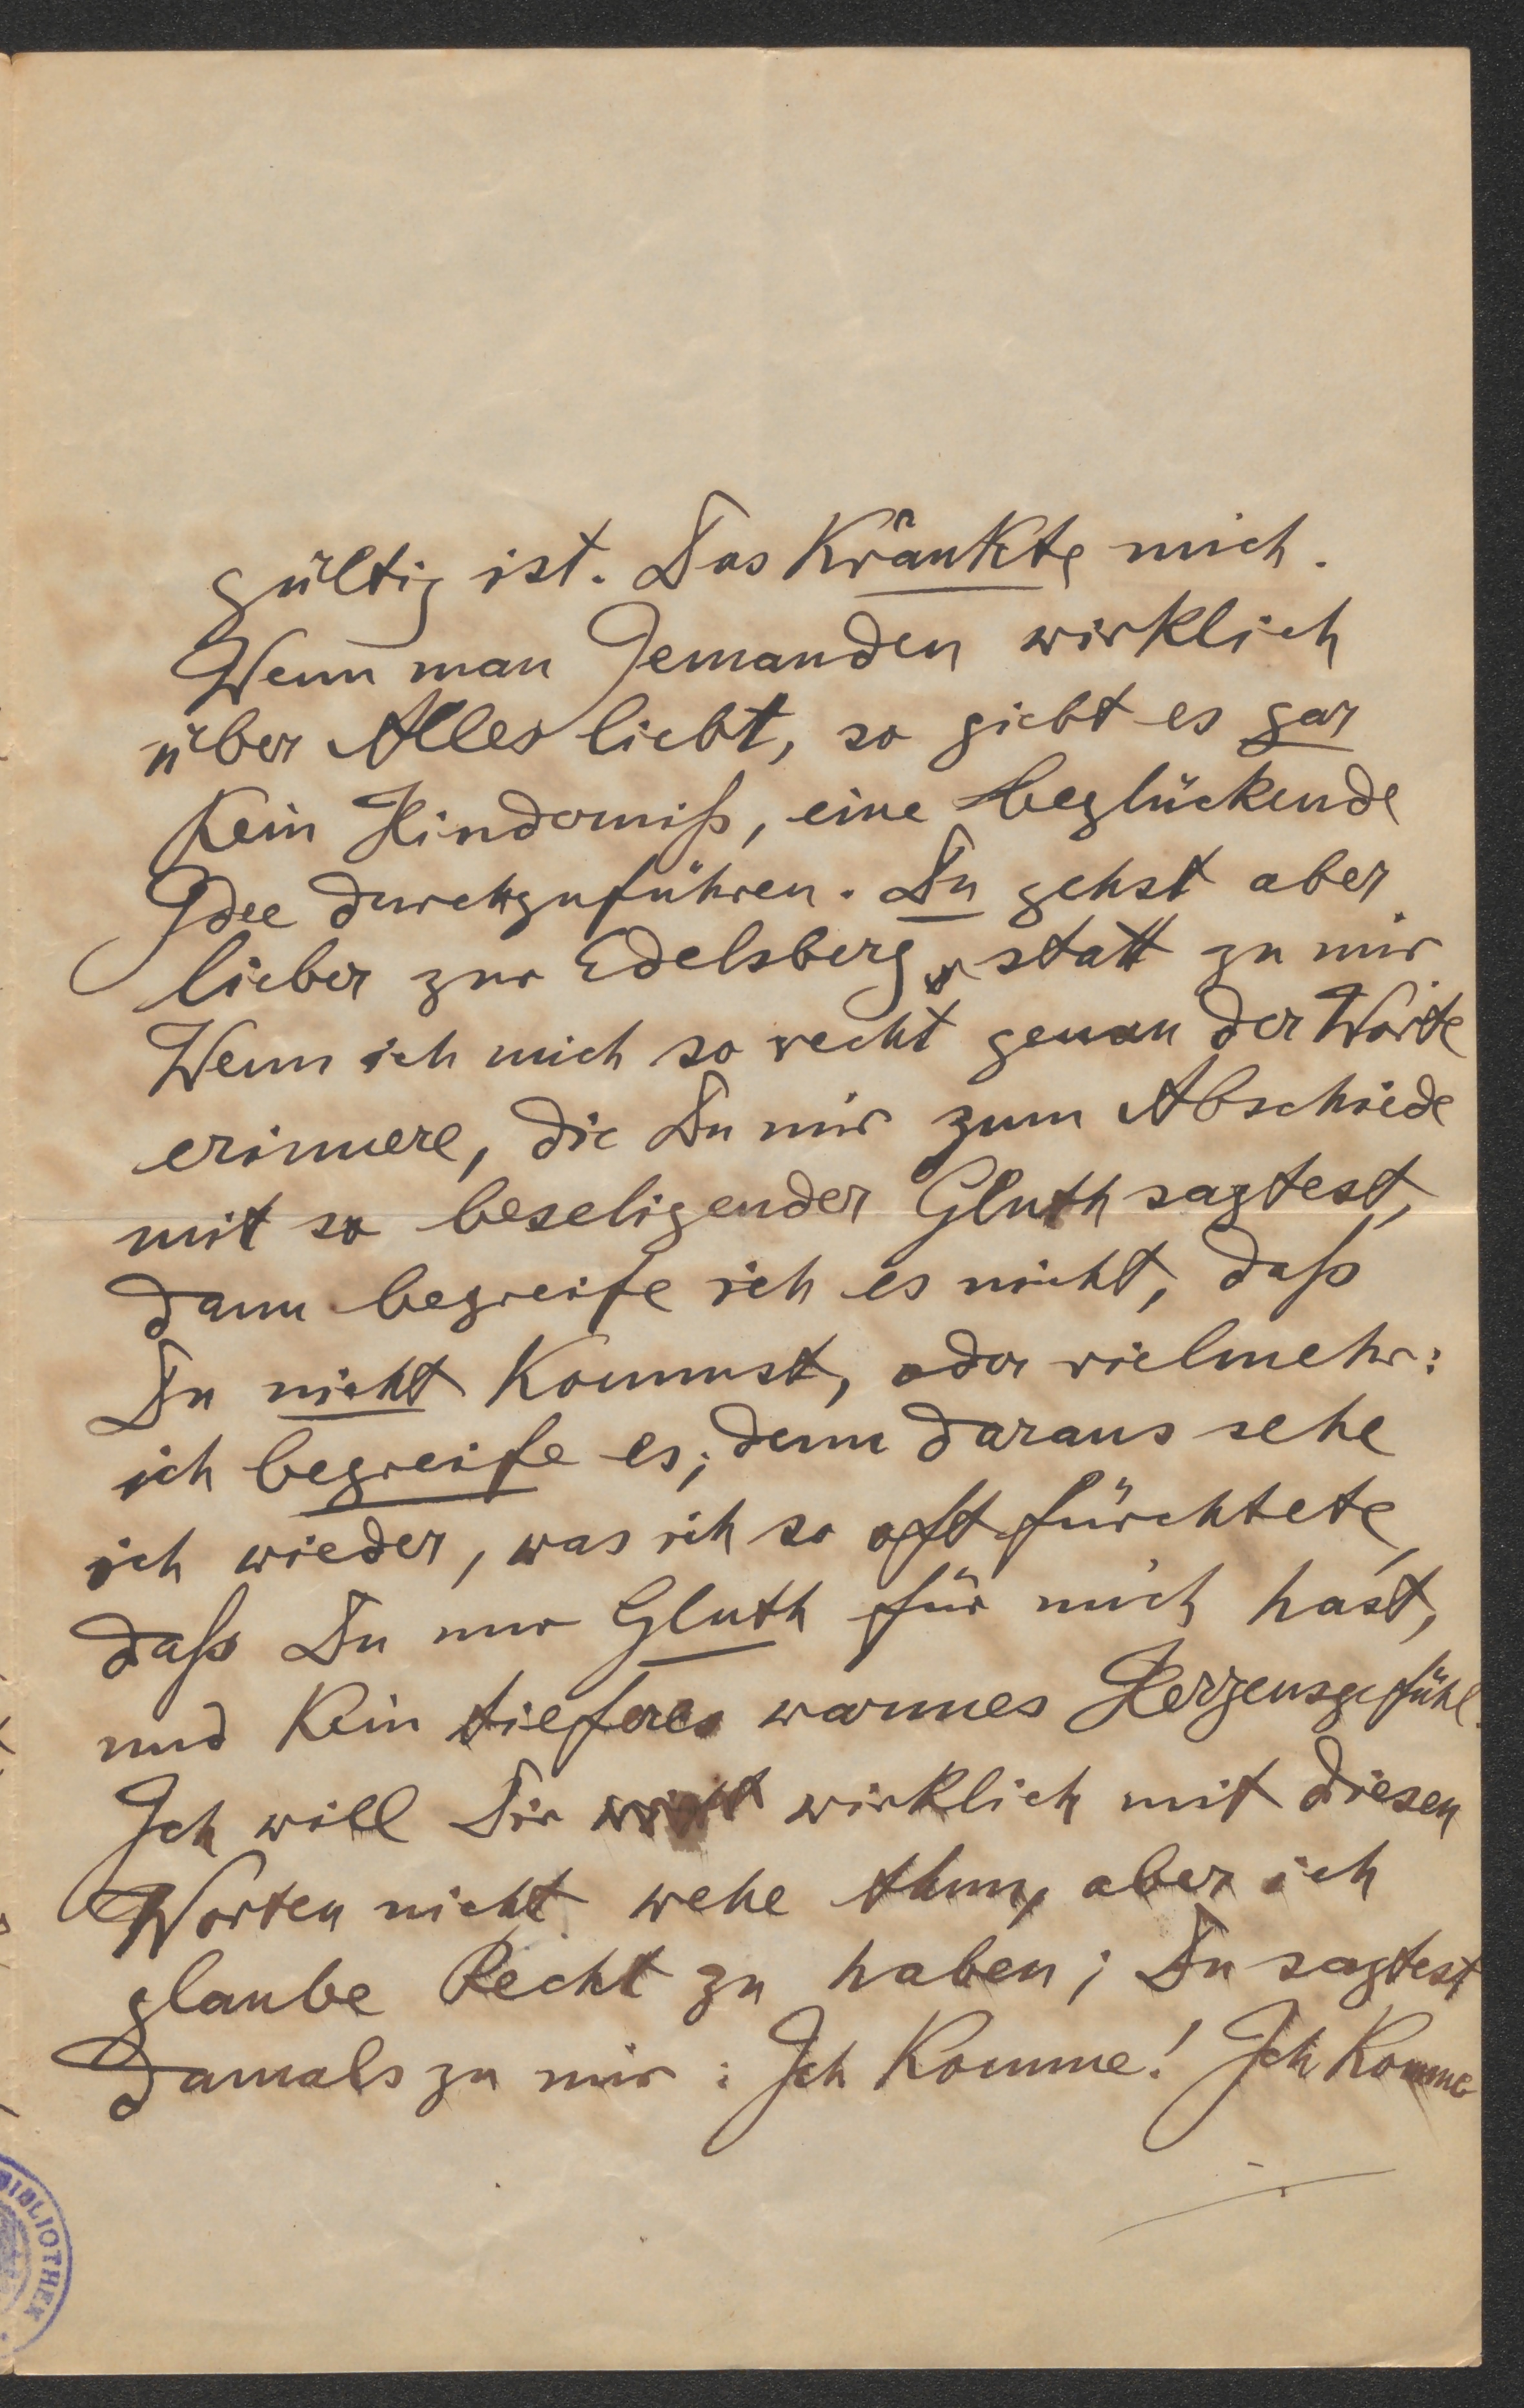 gültig ist. Das kränkte mich.
Wenn man Jemanden wirklich
über Alles liebt, so giebt es gar
kein Hinderniß, eine beglückende
Idee durchzuführen. Du gehst aber
lieber zur Edelsberg, statt zu mir.
Wenn ich mich so recht genau der Worte
erinnere, die Du mir zum Abschiede
mit so beseligender Gluth sagtest,
dann begreife ich es nicht, daß
Du nicht kommst, oder vielmehr:
ich begreife es; denn daraus sehe
ich wieder, was ich so oft fürchtete,
daß Du nur Gluth für mich hast,
und kein tieferes warmes Herzensgefühl.
Ich will Dir wirklich mit diesen
Worten nicht wehe thun, aber ich
glaube Recht zu haben; Du sagtest
damals zu mir: Ich komme! Ich komme
BIBLIOTHEK